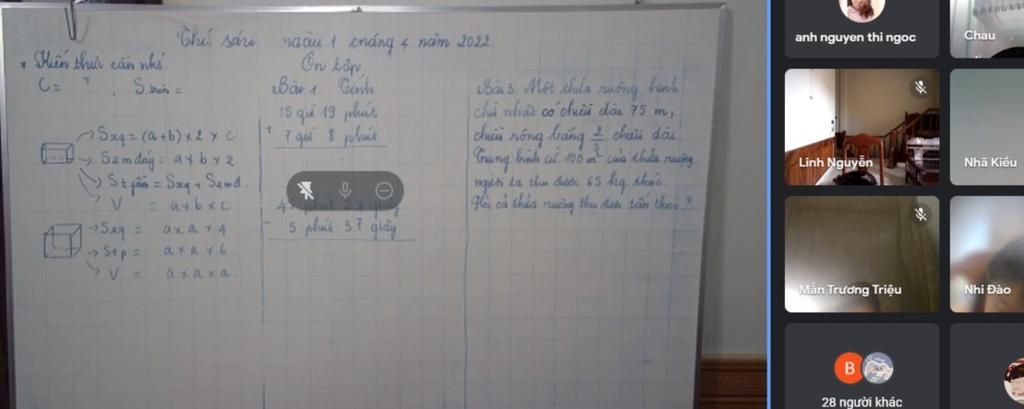 Thứ sáu ngày 1 tháng 4 năm 2022
Ôn tập
* Kiến thức cần nhớ
C = ? ; S tròn =
Sxq = (a+b) x 2 x c
S2mđáy = a x b x 2
Stphần = Sxq + S2mđ
V = a x b x c
Sxq = a x a x 4
Stp = a x a x 6
V = a x a x a
Bài 1. Tính
15 giờ 19 phút
+
7 giờ 8 phút
giây
-
5 phút 37 giây
Bài 3. Một thửa ruộng hình
chữ nhật có chiều dài 75 m,
chiều rộng bằng chiều dài.
Trung bình cứ 100 m² của thửa ruộng
người ta thu được 65 kg thóc.
Hỏi cả thửa ruộng thu được tấn thóc?
anh nguyen thi ngoc
Chau
Linh Nguyễn
Nhã Kiều
Mẫn Trương Triệu
Nhi Đào
B
28 người khác